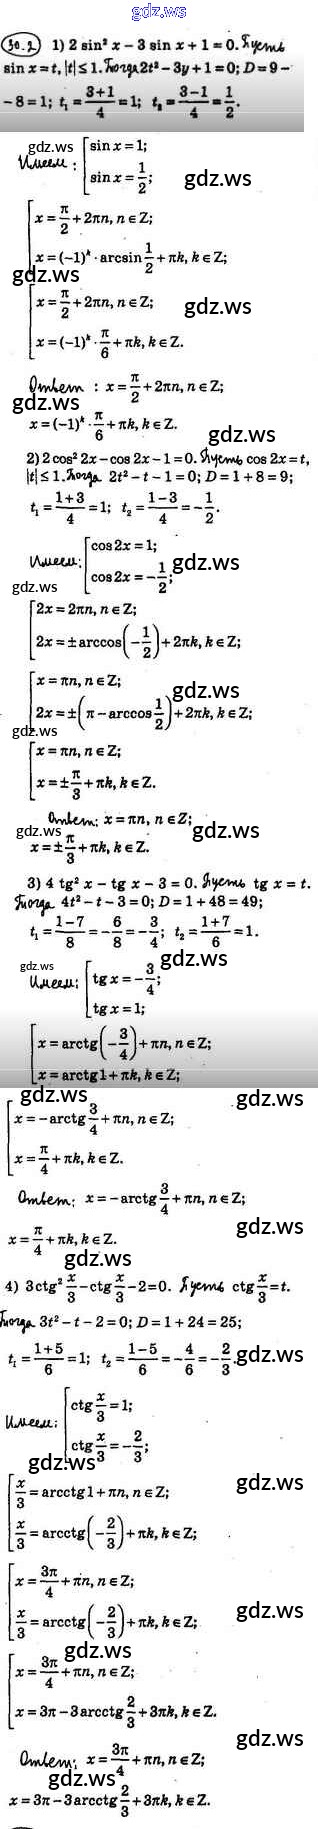 30.2 1) 2 sin² x − 3 sin x + 1 = 0. Пусть
sin x = t, |t| ≤ 1. Тогда 2t² − 3y + 1 = 0; D = 9 −
− 8 = 1; t₁ = (3+1)/4 = 1; t₂ = (3−1)/4 = 1/2.
gdz.ws
Имеем: [ sin x = 1;
sin x = 1/2; gdz.ws
[ x = π/2 + 2πn, n ∈ Z;
gdz.ws
x = (−1)ᵏ · arcsin 1/2 + πk, k ∈ Z;
gdz.ws
[ x = π/2 + 2πn, n ∈ Z;
gdz.ws
x = (−1)ᵏ · π/6 + πk, k ∈ Z.
Ответ: x = π/2 + 2πn, n ∈ Z;
gdz.ws
x = (−1)ᵏ · π/6 + πk, k ∈ Z.
2) 2 cos² 2x − cos 2x − 1 = 0. Пусть cos 2x = t,
|t| ≤ 1. Тогда 2t² − t − 1 = 0; D = 1 + 8 = 9;
t₁ = (1+3)/4 = 1; t₂ = (1−3)/4 = −1/2.
Имеем: [ cos 2x = 1;
gdz.ws
cos 2x = −1/2;
gdz.ws
[ 2x = 2πn, n ∈ Z;
2x = ± arccos(−1/2) + 2πk, k ∈ Z;
[ x = πn, n ∈ Z;
gdz.ws
2x = ±(π − arccos 1/2) + 2πk, k ∈ Z;
gdz.ws
[ x = πn, n ∈ Z;
x = ± π/3 + πk, k ∈ Z.
Ответ: x = πn, n ∈ Z;
gdz.ws gdz.ws
x = ± π/3 + πk, k ∈ Z.
3) 4 tg² x − tg x − 3 = 0. Пусть tg x = t.
Тогда 4t² − t − 3 = 0; D = 1 + 48 = 49;
t₁ = (1−7)/8 = −6/8 = −3/4; t₂ = (1+7)/6 = 1.
gdz.ws gdz.ws
Имеем: [ tg x = −3/4;
tg x = 1;
[ x = arctg(−3/4) + πn, n ∈ Z;
x = arctg1 + πk, k ∈ Z;
gdz.ws gdz.ws
[ x = −arctg 3/4 + πn, n ∈ Z;
x = π/4 + πk, k ∈ Z.
Ответ: x = −arctg 3/4 + πn, n ∈ Z;
x = π/4 + πk, k ∈ Z.
gdz.ws
4) 3ctg² x/3 − ctg x/3 − 2 = 0. Пусть ctg x/3 = t.
Тогда 3t² − t − 2 = 0; D = 1 + 24 = 25;
t₁ = (1+5)/6 = 1; t₂ = (1−5)/6 = −4/6 = −2/3. gdz.ws
Имеем: [ ctg x/3 = 1;
ctg x/3 = −2/3;
gdz.ws
[ x/3 = arcctg1 + πn, n ∈ Z; gdz.ws
x/3 = arcctg(−2/3) + πk, k ∈ Z;
[ x = 3π/4 + πn, n ∈ Z;
gdz.ws
x/3 = arcctg(−2/3) + πk, k ∈ Z;
gdz.ws
[ x = 3π/4 + πn, n ∈ Z;
x = 3π − 3arcctg 2/3 + 3πk, k ∈ Z.
gdz.ws
Ответ: x = 3π/4 + πn, n ∈ Z;
gdz.ws
x = 3π − 3arcctg 2/3 + 3πk, k ∈ Z.